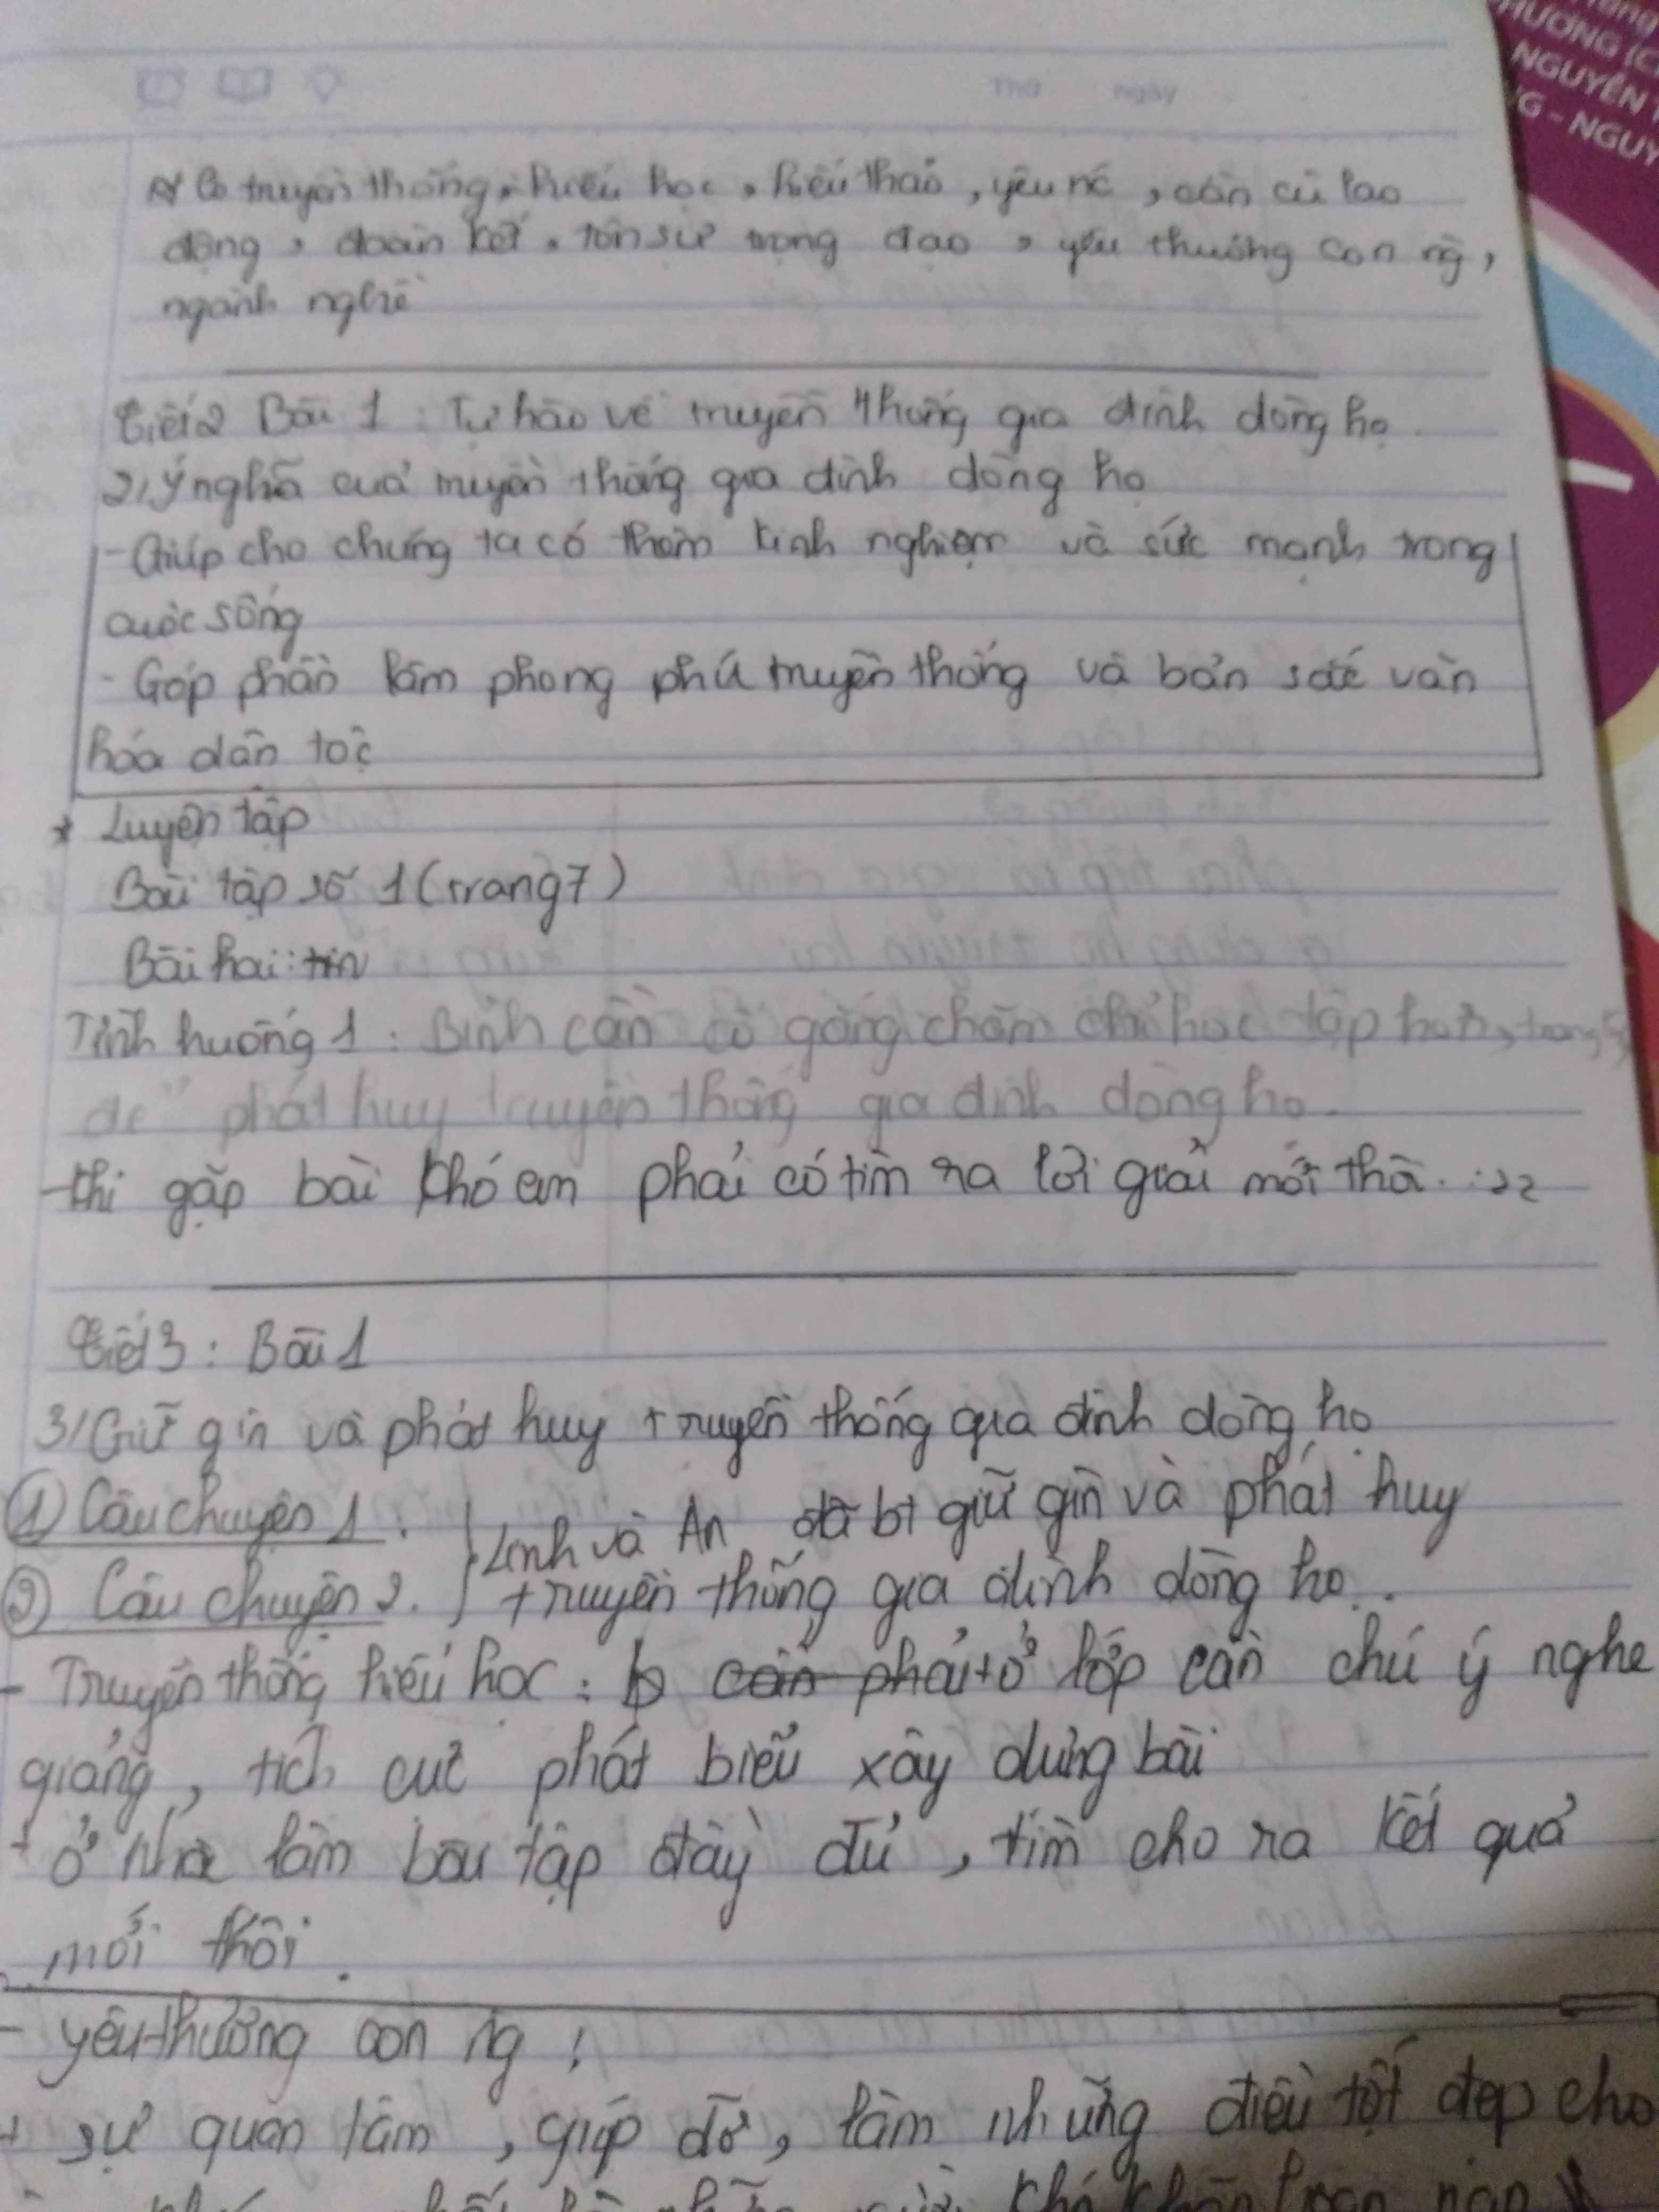 Thứ ngày
ƯƠNG (C
NGUYỄN T
G - NGUY
Có truyền thống, hiếu học, hiếu thảo, yêu nc, cần cù lao
động, đoàn kết, tôn sư trọng đạo, yêu thương con ng,
ngành nghề
Tiết 2 Bài 1: Tự hào về truyền thống gia đình dòng họ
2, Ý nghĩa cuả truyền thống gia đình dòng họ
- Giúp cho chúng ta có thêm kinh nghiệm và sức mạnh trong
cuộc sống
- Góp phần làm phong phú truyền thống và bản sắc văn
hóa dân tộc
* Luyện tập
Bài tập số 1 (trang 7)
Bài hai:
Tình huống 1: Bình cần cố gắng chăm chỉ học tập hơn,
để phát huy truyền thống gia đình dòng họ.
- Khi gặp bài khó em phải cố tìm ra lời giải mới thôi
Tiết 3: Bài 1
3/ Giữ gìn và phát huy truyền thống gia đình dòng họ
① Câu chuyện 1: } Linh và An đã bt giữ gìn và phát huy
② Câu chuyện 2. truyền thống gia đình dòng họ.
- Truyền thống hiếu học: cần phải + ở lớp cần chú ý nghe
giảng, tích cực phát biểu xây dựng bài
+ ở nhà làm bài tập đầy đủ, tìm cho ra kết quả
mới thôi.
- yêu thương con ng:
+ sự quan tâm, giúp đỡ, làm những điều tốt đẹp cho
khó khăn hoạn nạn